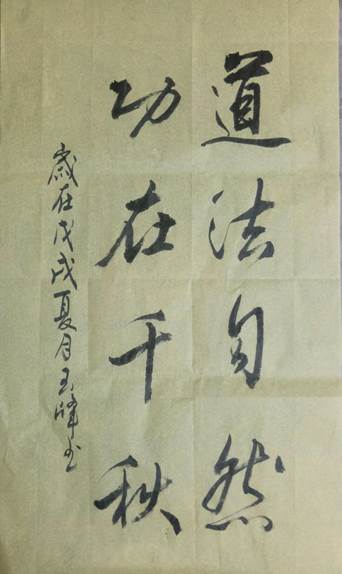 道法自然
功在千秋
歲在戊戌夏月玉峰书